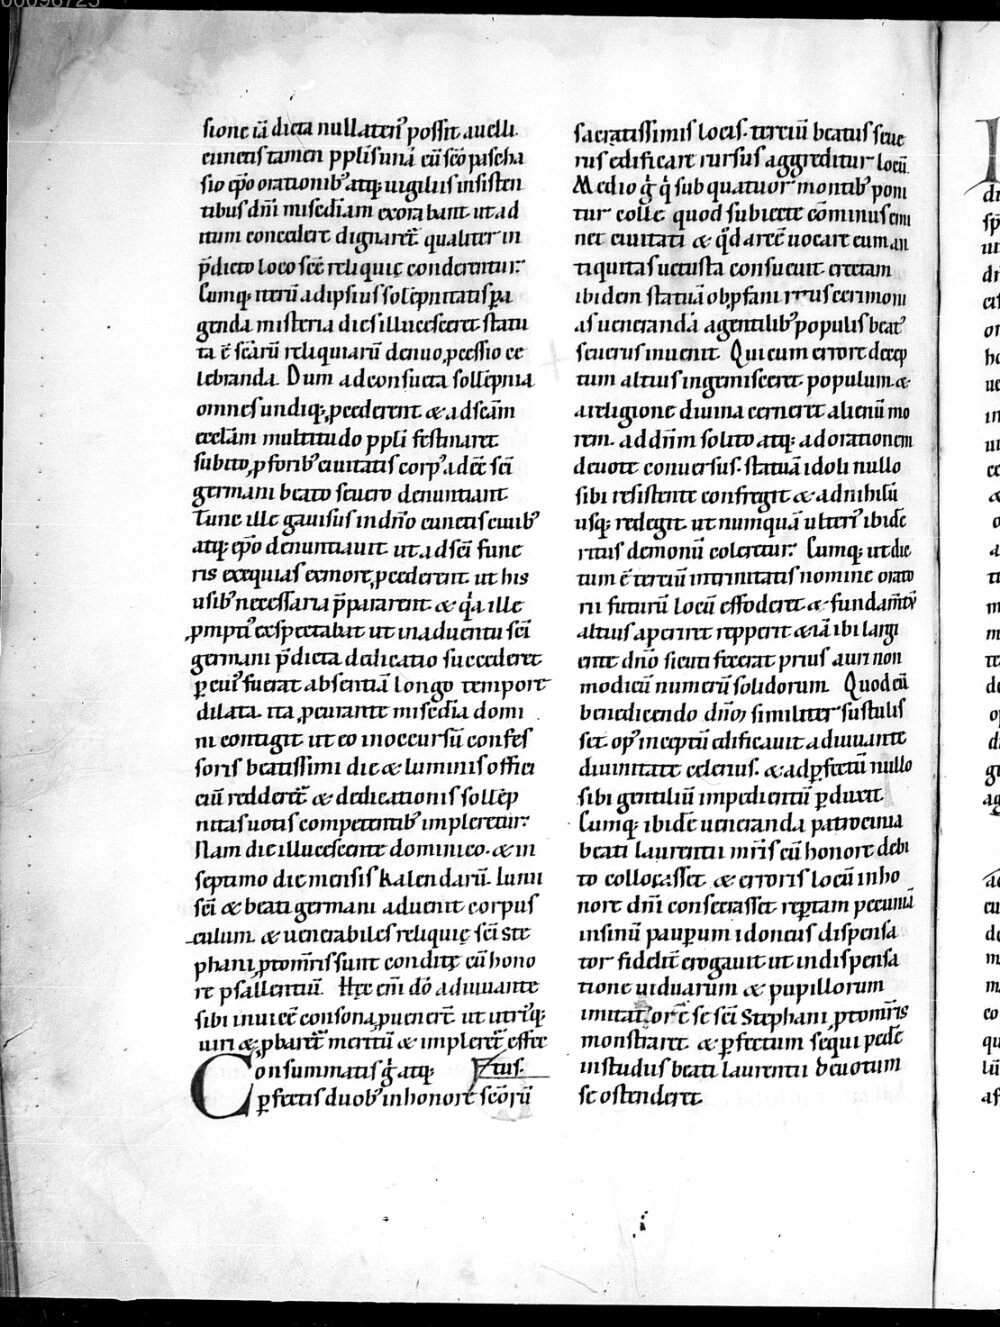 00096723
sione iā dicta nullaten᷒ possit auelli.
cunctis tamen pplis unā cū scō pascha
sio ep̄o orationib᷒ atq; uigiliis insisten
tibus dn̄i miscd̄iam exorabant ut ad
itum concedere dignaret̄ qualiter in
p̄dicto loco scē reliquię conderentur.
Cumq; iterū adipsius solēpnitatis pa
genda misteria dies illucesceret statu
ta ē scārū reliquiarū denuo p̱cessio ce
lebranda. Dum ad consueta sollēpnia
omnes undiq; p̱cederent & ad scām
ecclām multitudo ppli festinaret
subito p̱ forib᷒ ciuitatis corp᷒ adeē sc̄i
germani beato seuero denuntiant
Tunc ille gauisus in dn̄o cunctis ciuib᷒
atq; ep̄o denuntiauit ut ad sc̄i fune
ris exequias ex more p̱cederent ut his
usib᷒ necessaria p̄pararent & qa ille
p̱mpt᷒ expectabat ut in aduentu sc̄i
germani p̄dicta dedicatio succederet
p̱ cui᷒ fuerat absentiā longo tempore
dilata. ita p̱curante miscd̄ia domi
ni contigit ut eo in occursū confes
soris beatissimi die & luminis offici
ciū redderet̄ & dedicationis sollēp
nitas uotis competentib᷒ impleretur.
Nam die illucescente dominico. & in
septimo die mensis kalendarū. Iunii
sc̄i & beati germani aduenit corpus
culum. & uenerabiles reliquię sc̄i ste
phani p̱tom̄ris sunt condite cū hono
re psallentiū. Hęc em̄ dō adiuuante
sibi inuicē consona p̱uener̄t ut utriq;
uiri & p̱baret̄ meritū & impleret̄ effec
Consummatis ḡ atq; tus.
p̱fectis duob᷒ in honore sc̄orū
sacratissimis locis. terciū beatus seue
rus edificare rursus aggreditur locū.
Medio ḡ q̄ sub quatuor montib᷒ poni
tur colle quod subiecte cōminus emi
net ciuitati & qd̄ arcē uocare eum an
tiquitas uetusta consueuit erectam
ibidem statuā ob p̱fani ritus cerimoni
as ueneranda a gentilib᷒ populis beat᷒
seuerus inuenit. Qui cum errore decep
tum altius ingemisceret populum. &
a religione diuina cerneret alienū mo
rem. ad dn̄m solito atq; ad orationem
deuote conuersus. statuā idoli nullo
sibi resistente confregit & ad nihilū
usq; redegit ut numquā ulteri᷒ ibidē
ritus demonū coleretur. Cumq; ut dic
tum ē terciū in trinitatis nomine orato
rii futurū locū effoderet & fundam̄tū
altius aperiret repperit & iā ibi largi
ente dn̄o sicuti fecerat prius auri non
modicū numerū solidorum. Quod cū
benedicendo dn̄m similiter sustulis
set op᷒ inceptū edificauit adiuuante
diuinitate celerius. & ad p̱fectū nullo
sibi gentiliū impedientū p̱duxit.
Cumq; ibidē ueneranda patrocinia
beati laurentii mr̄is cū honore debi
to collocasset & erroris locū in ho
nore dn̄i consecrasset rep̱tam pecuniā
in sinū paup̱um idoneus dispensa
tor fidelit̄ erogauit ut in dispensa
tione uiduarum & pupillorum
imitatorē se sc̄i Stephani p̱tom̄ris
monstraret & p̱fectum sequi pedē
in studus beati laurentii deuotum
se ostenderet.